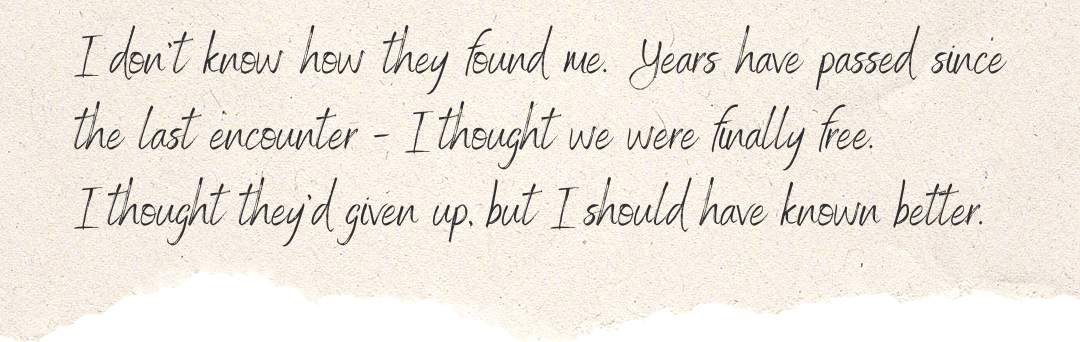 I don't know how they found me. Years have passed since
the last encounter - I thought we were finally free.
I thought they'd given up, but I should have known better.